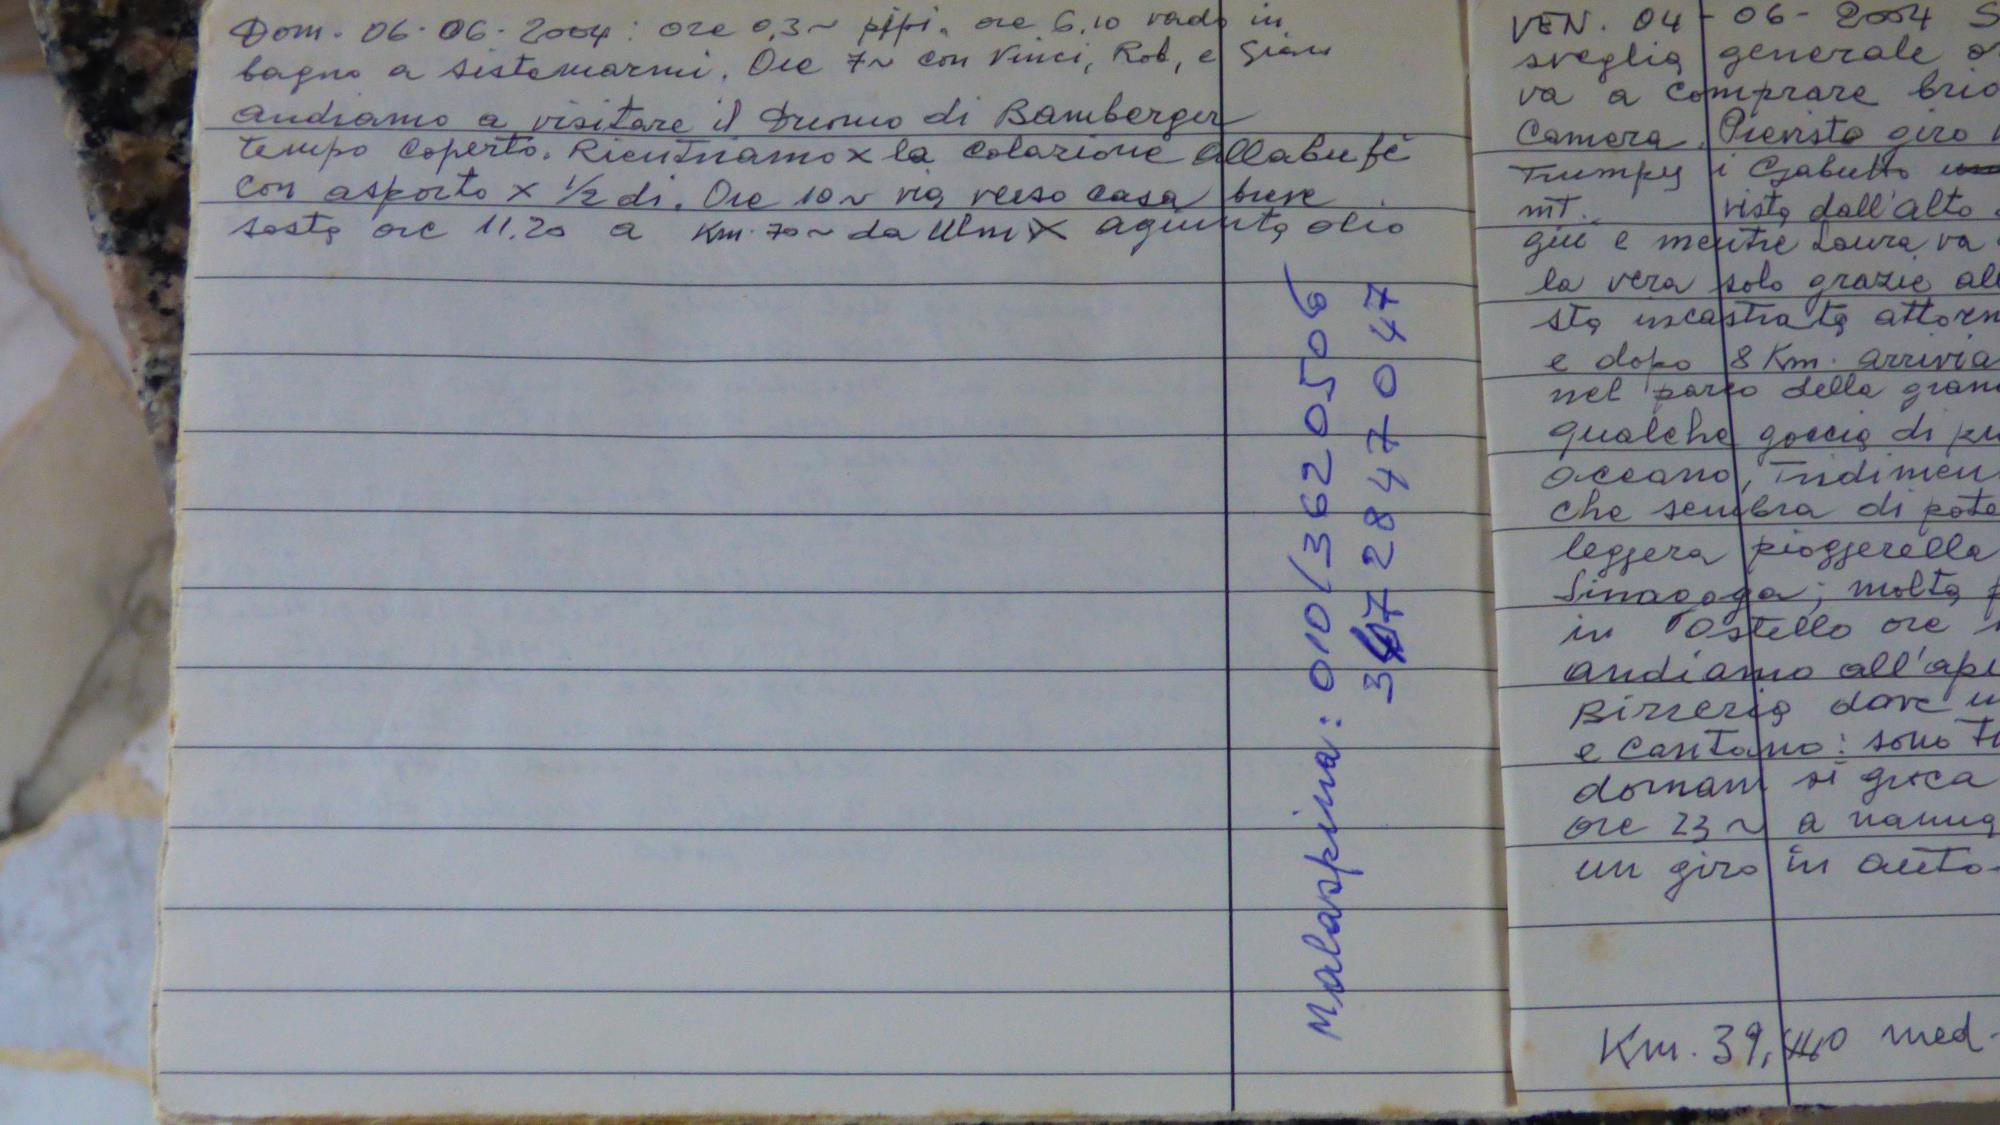 Dom. 06-06-2004: ore 0,3~ pipi. ore 6,10 vado in
bagno a sistemarmi. Ore 7~ con Vinci, Rob, e
andiamo a visitare il Duomo di Bamberger
tempo coperto. Rientriamo x la colazione allabufè
con asporto x 1/2 dì. Ore 10~ via verso casa breve
sosta ore 11.20 a Km. 70~ da Ulm x agiunta olio
Malaspina: 010/3620506
347 2847047
VEN. 04-06-2004 S
sveglia generale o
va a comprare brio
Camera. Prevista giro
Trumpy i Gabutto
mt. vista dall'alto
giù e mentre Laura va
la vera solo grazie all
sta incastrata attorn
e dopo 8 Km. arrivia
nel parco della gran
qualche goccia di
oceano, Tridimen
che sembra di pote
leggera pioggerella
Sinagoga; molta
in Ostello ore
andiamo all'ape
Birreria dove
e cantano: sono
domani si gioca
ore 23~ a nanna
un giro in auto-
Km. 39,440 med-